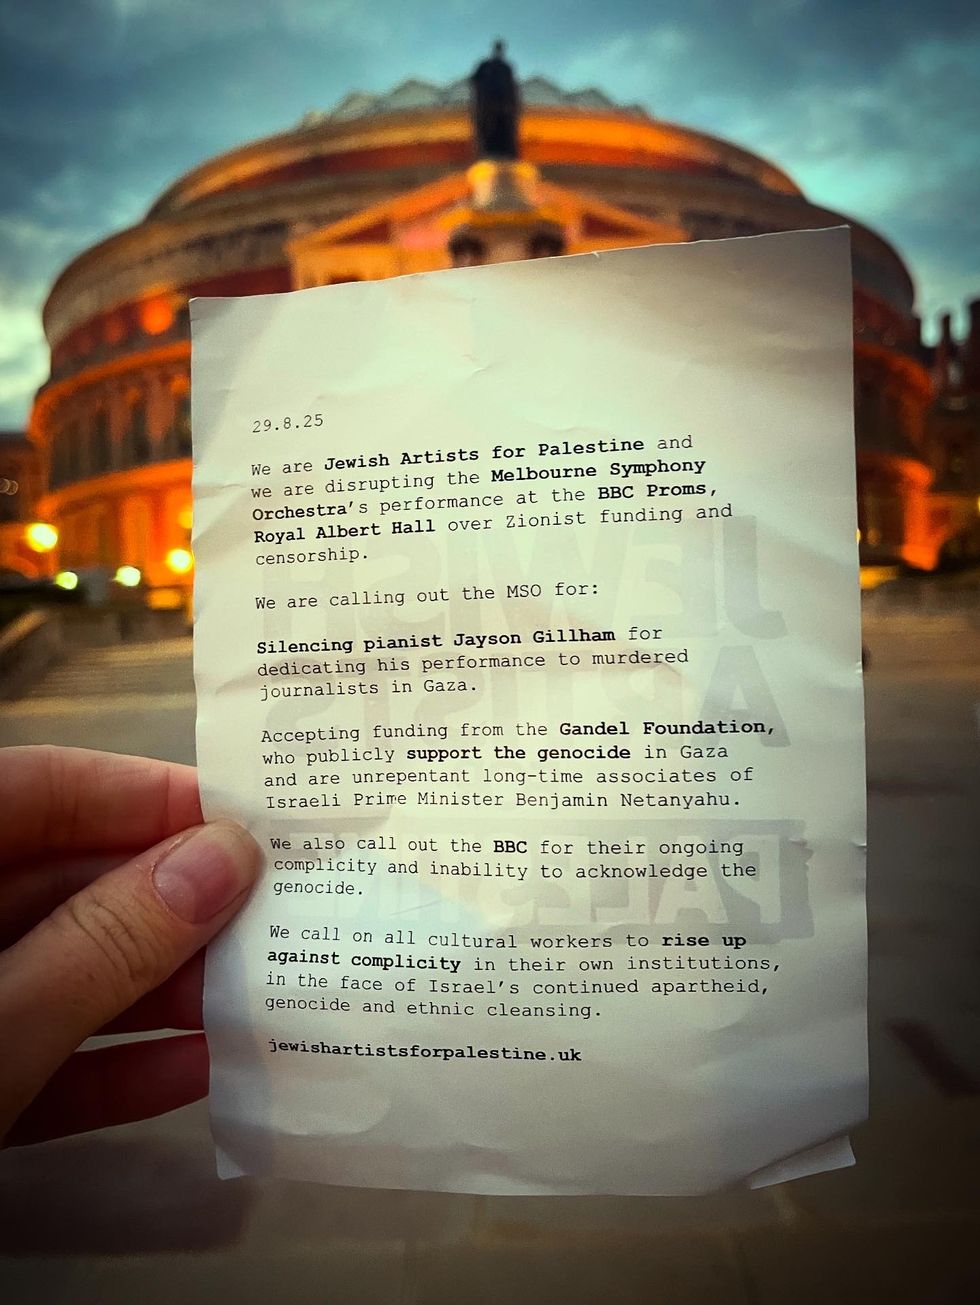 29.8.25
We are Jewish Artists for Palestine and
we are disrupting the Melbourne Symphony
Orchestra's performance at the BBC Proms,
Royal Albert Hall over Zionist funding and
censorship.
We are calling out the MSO for:
Silencing pianist Jayson Gillham for
dedicating his performance to murdered
journalists in Gaza.
Accepting funding from the Gandel Foundation,
who publicly support the genocide in Gaza
and are unrepentant long-time associates of
Israeli Prime Minister Benjamin Netanyahu.
We also call out the BBC for their ongoing
complicity and inability to acknowledge the
genocide.
We call on all cultural workers to rise up
against complicity in their own institutions,
in the face of Israel's continued apartheid,
genocide and ethnic cleansing.
jewishartistsforpalestine.uk
JEWISH
ARTISTS
PALESTINE